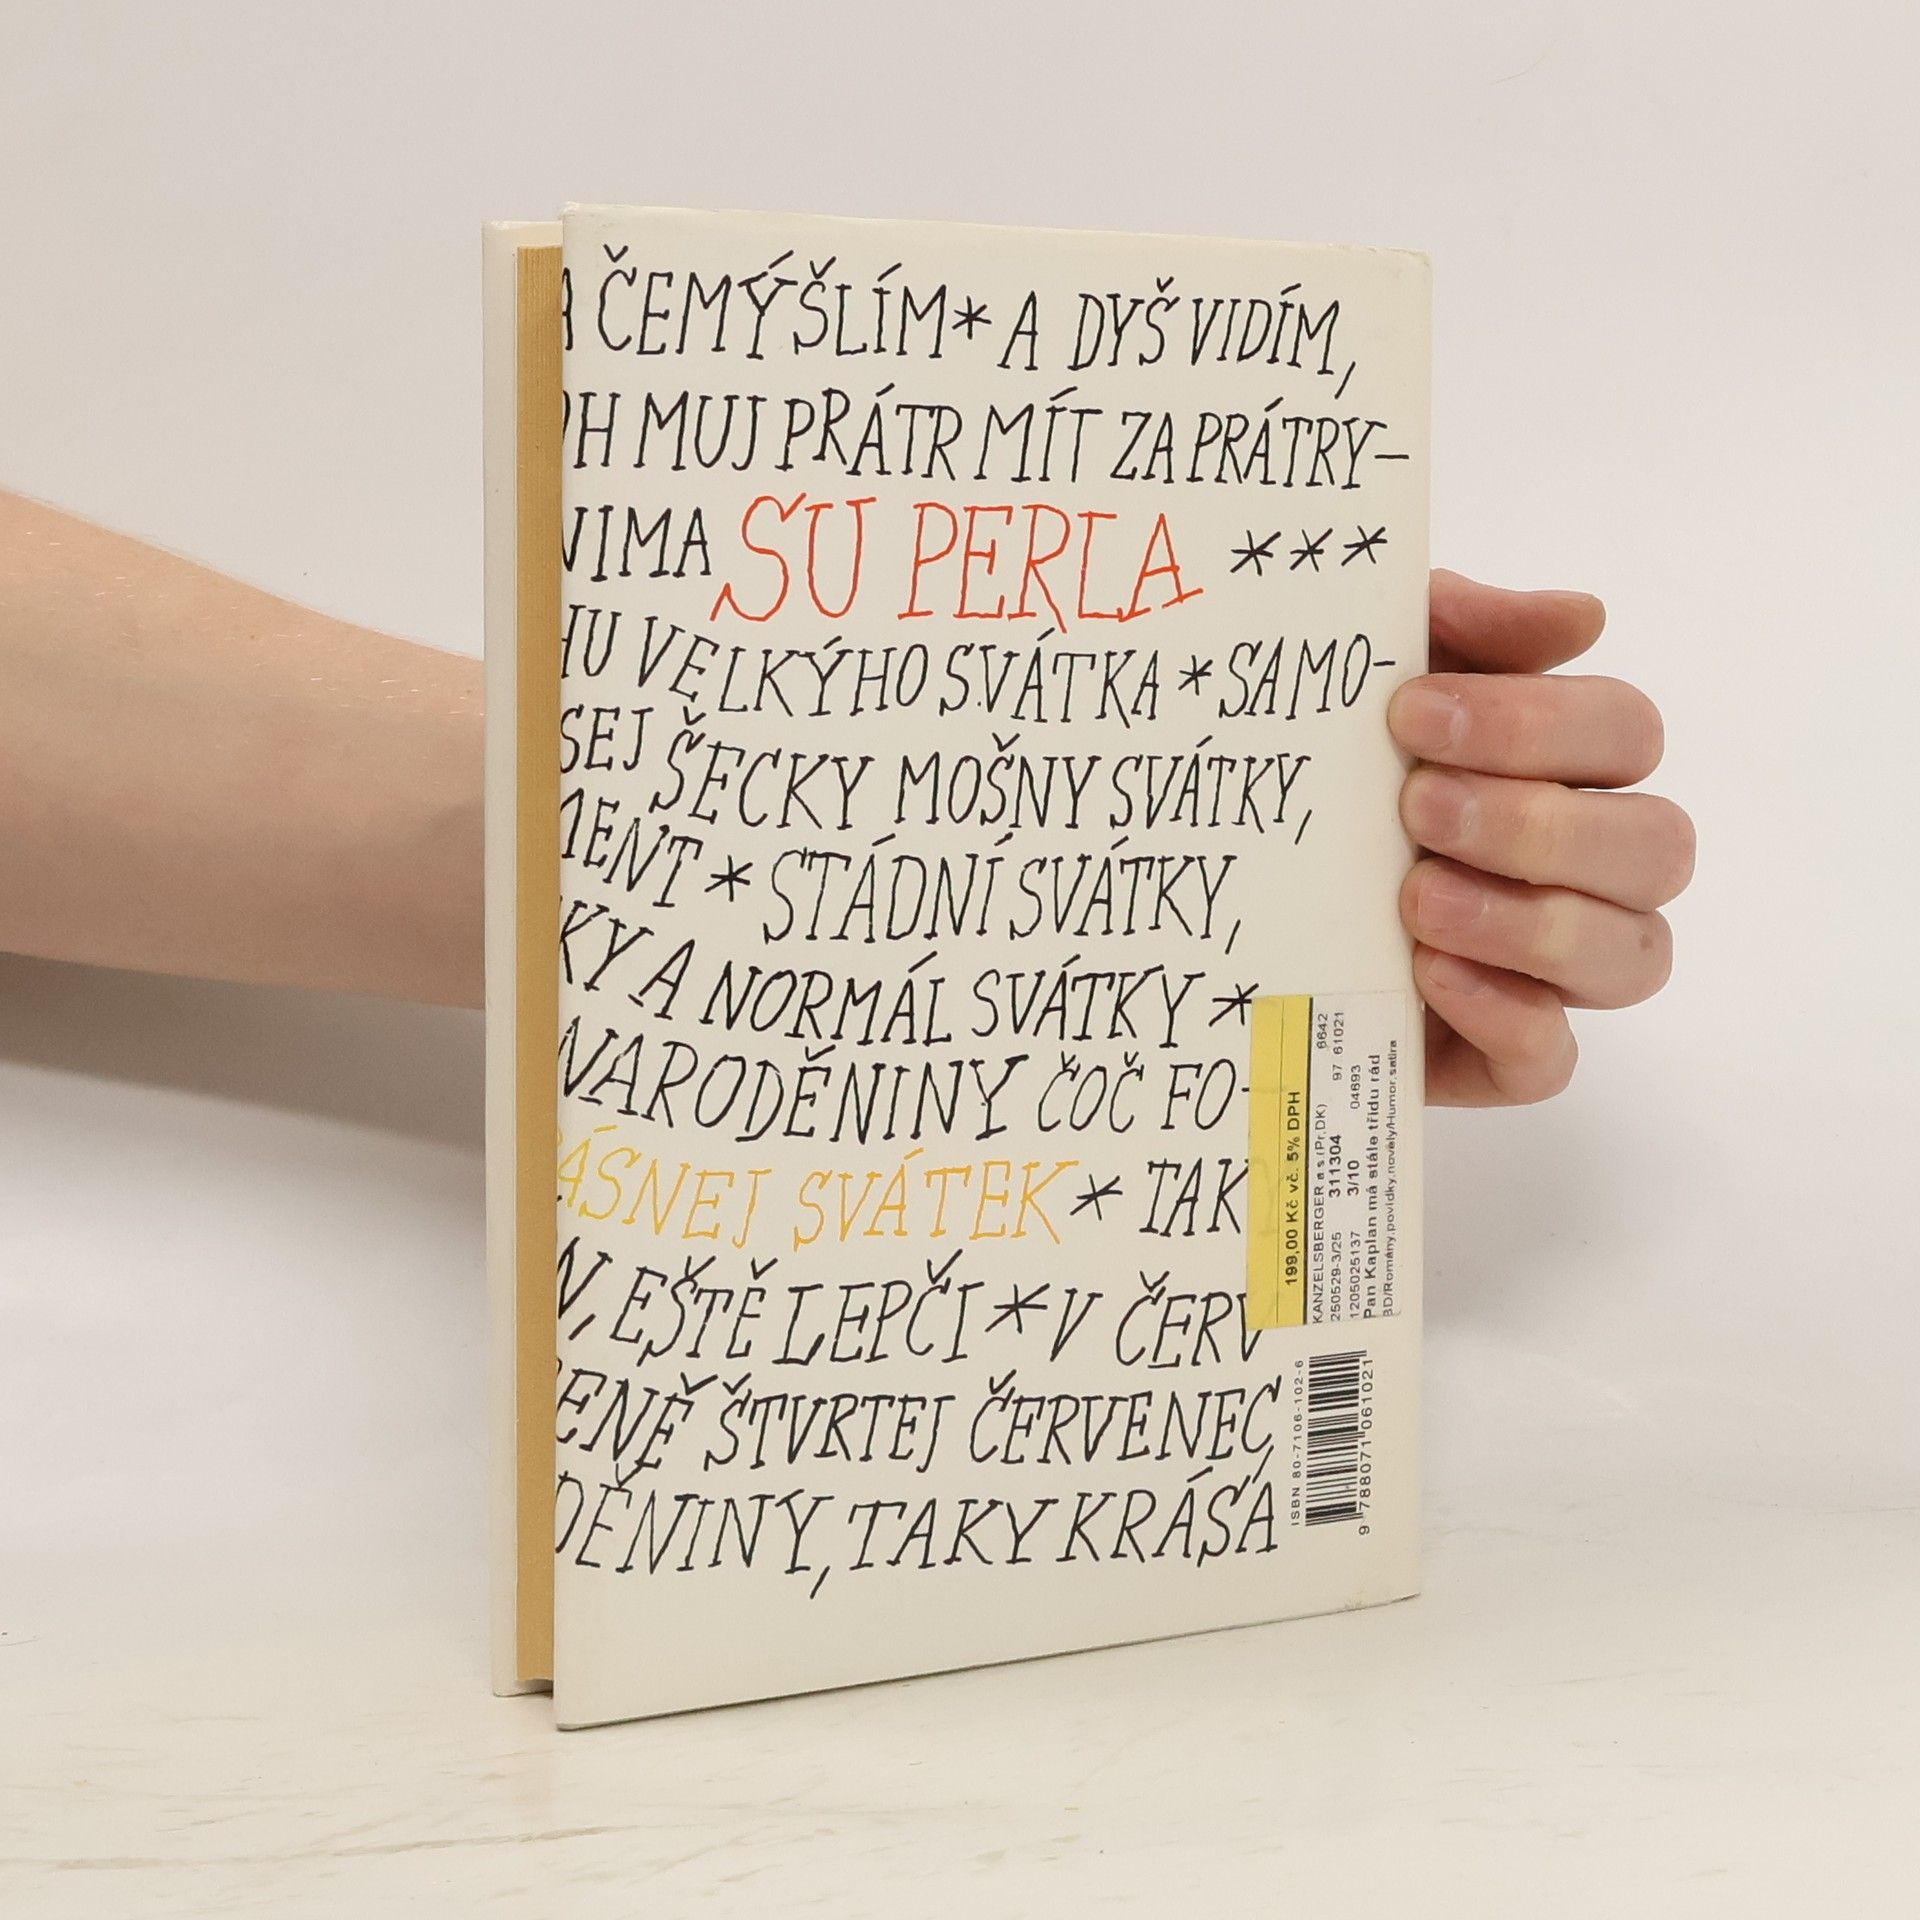 ČEMÝŠLÍM * A DYŠ VIDÍM,
MUJ PRÁTR MÍT ZA PRÁTRY-
NIMA SU PERLA ***
HU VELKÝHO SVÁTKA * SAMO-
SEJ ŠECKY MOŠNY SVÁTKY,
MENT * STÁDNÍ SVÁTKY,
KY A NORMÁL SVÁTKY *
NARODĚNINY ČOČ FO-
ÁSNEJ SVÁTEK * TAK
N, EŠTĚ LEPČI * V ČERV
ENĚ ŠTVRTEJ ČERVENEC,
DĚNINY, TAKY KRÁSA
199,00 Kč vč. 5% DPH
KANZELSBERGER a.s.(Pr,DK) 6642
250529-3/25 311304 97 61021
1205025137 3/10 04693
Pan Kaplan má stále třídu rád
BD/Romány,povídky,novely/Humor,satira
ISBN 80-7106-102-6
9 788071 061021